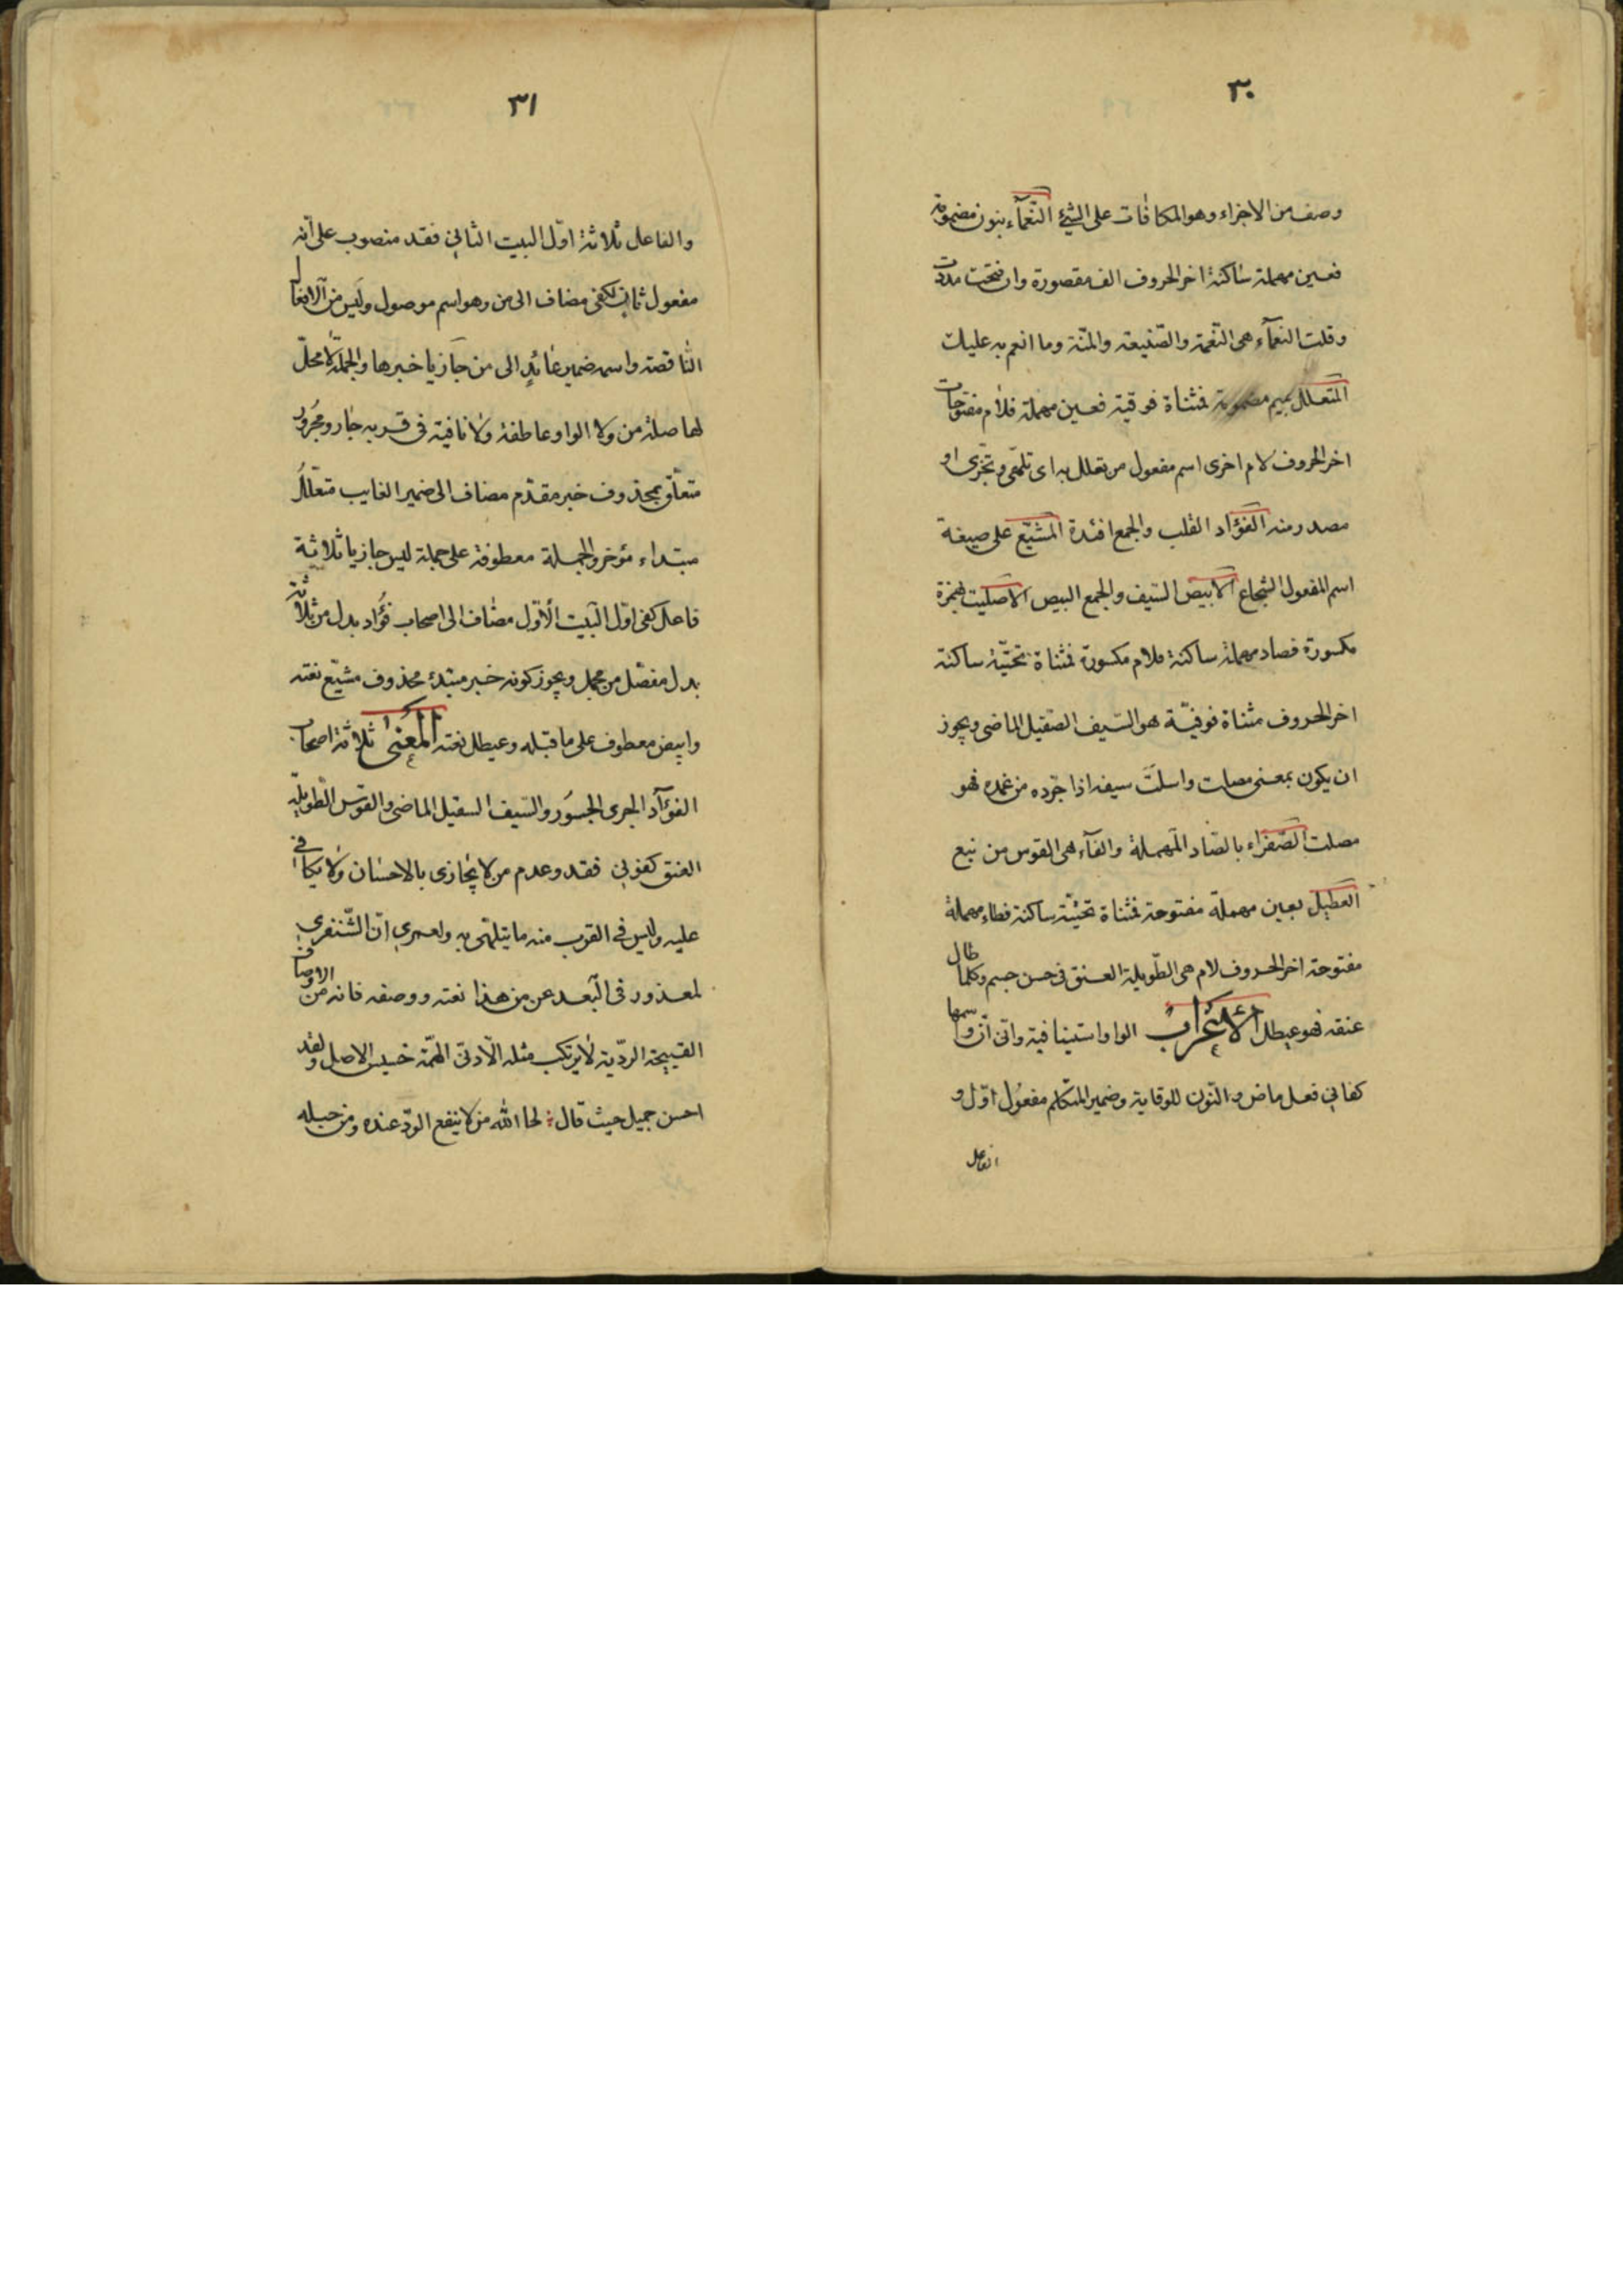 ٣٠
وصف من الاجزاء وهو المكافات على الشئ النعمآء بنون مضمومة
فعين مهملة ساكنة اخر الحروف الف مقصورة وان فتحت مددت
وقلت النعمآء هى النّعمة والصّنيعة والمنّة وما انعم به عليك
المتعلل بميم مضمومة فمثناة فوقية فعين مهملة فلام مفتوحات
اخر الحروف لام اخرى اسم مفعول من تعلل به اى تلهّى وتجزى او
مصدر منه الفؤاد القلب والجمع افئدة المشيّع على صيغة
اسم المفعول الشجاع الابيض السّيف والجمع البيض الاصليت بهمزة
مكسورة فصاد مهملة ساكنة فلام مكسورة فمثناة تحتيّة ساكنة
اخر الحروف مثناة فوقيّة هو السّيف الصّقيل الماضى ويجوز
ان يكون بمعنى مصلت واسلت سيفه اذا جرّده من غمده فهو
مصلت الصّفراء بالصّاد المهملة والفآء هى القوس من نبع
العطيل بعين مهملة مفتوحة فمثناة تحتيّة ساكنة فطاء مهملة
مفتوحة اخر الحروف لام هى الطّويلة العنق فى حسن جسم وكلما طال
عنقه فهو عيطل الاعراب الواو استينافية وانى انّ واسمها
كفانى فعل ماض والنّون للوقاية وضمير المتكلم مفعول اوّل و
الفاعل
٣١
والفاعل ثلاثة اوّل البيت الثانى فقد منصوب على انّه
مفعول ثان لكفى مضاف الى من وهو اسم موصول وليس من الافعال
النّاقصة واسمه ضمير عائد الى من جازيا خبرها والجملة لا محلّ
لها صلة من ولا الواو عاطفة ولا نافية فى قربه جار ومجرور
متعلّق بمحذوف خبر مقدّم مضاف الى ضمير الغايب متعلّل
مبتداء مؤخر والجملة معطوفة على جملة ليس جازيا ثلاثة
فاعل كفى اوّل البيت الاوّل مضاف الى اصحاب فؤاد بدل من ثلاثة
بدل مفصّل من مجمل ويجوز كونه خبر مبتدء محذوف مشيّع نعته
وابيض معطوف على ما قبله وعيطل نعته المعنى ثلاثة اصحاب
الفؤآد الجرى الجسور والسّيف السقيل الماضى والقوس الطّويلة
العنق كفونى فقد وعدم من لا يجازى بالاحسان ولا يكافى
عليه وليس فى القرب منه ما يتلهّى به ولعمرى انّ الشّنفرى
لمعذور فى البعد عن من هذا نعته ووصفه فانه من الاوصاف
القبيحة الرديّة لا يرتكب مثله الّا دنىّ الهمّة خسيس الاصل ولقد
احسن جميل حيث قال لحا الله من لا ينفع الودّ عنده ومن حبله